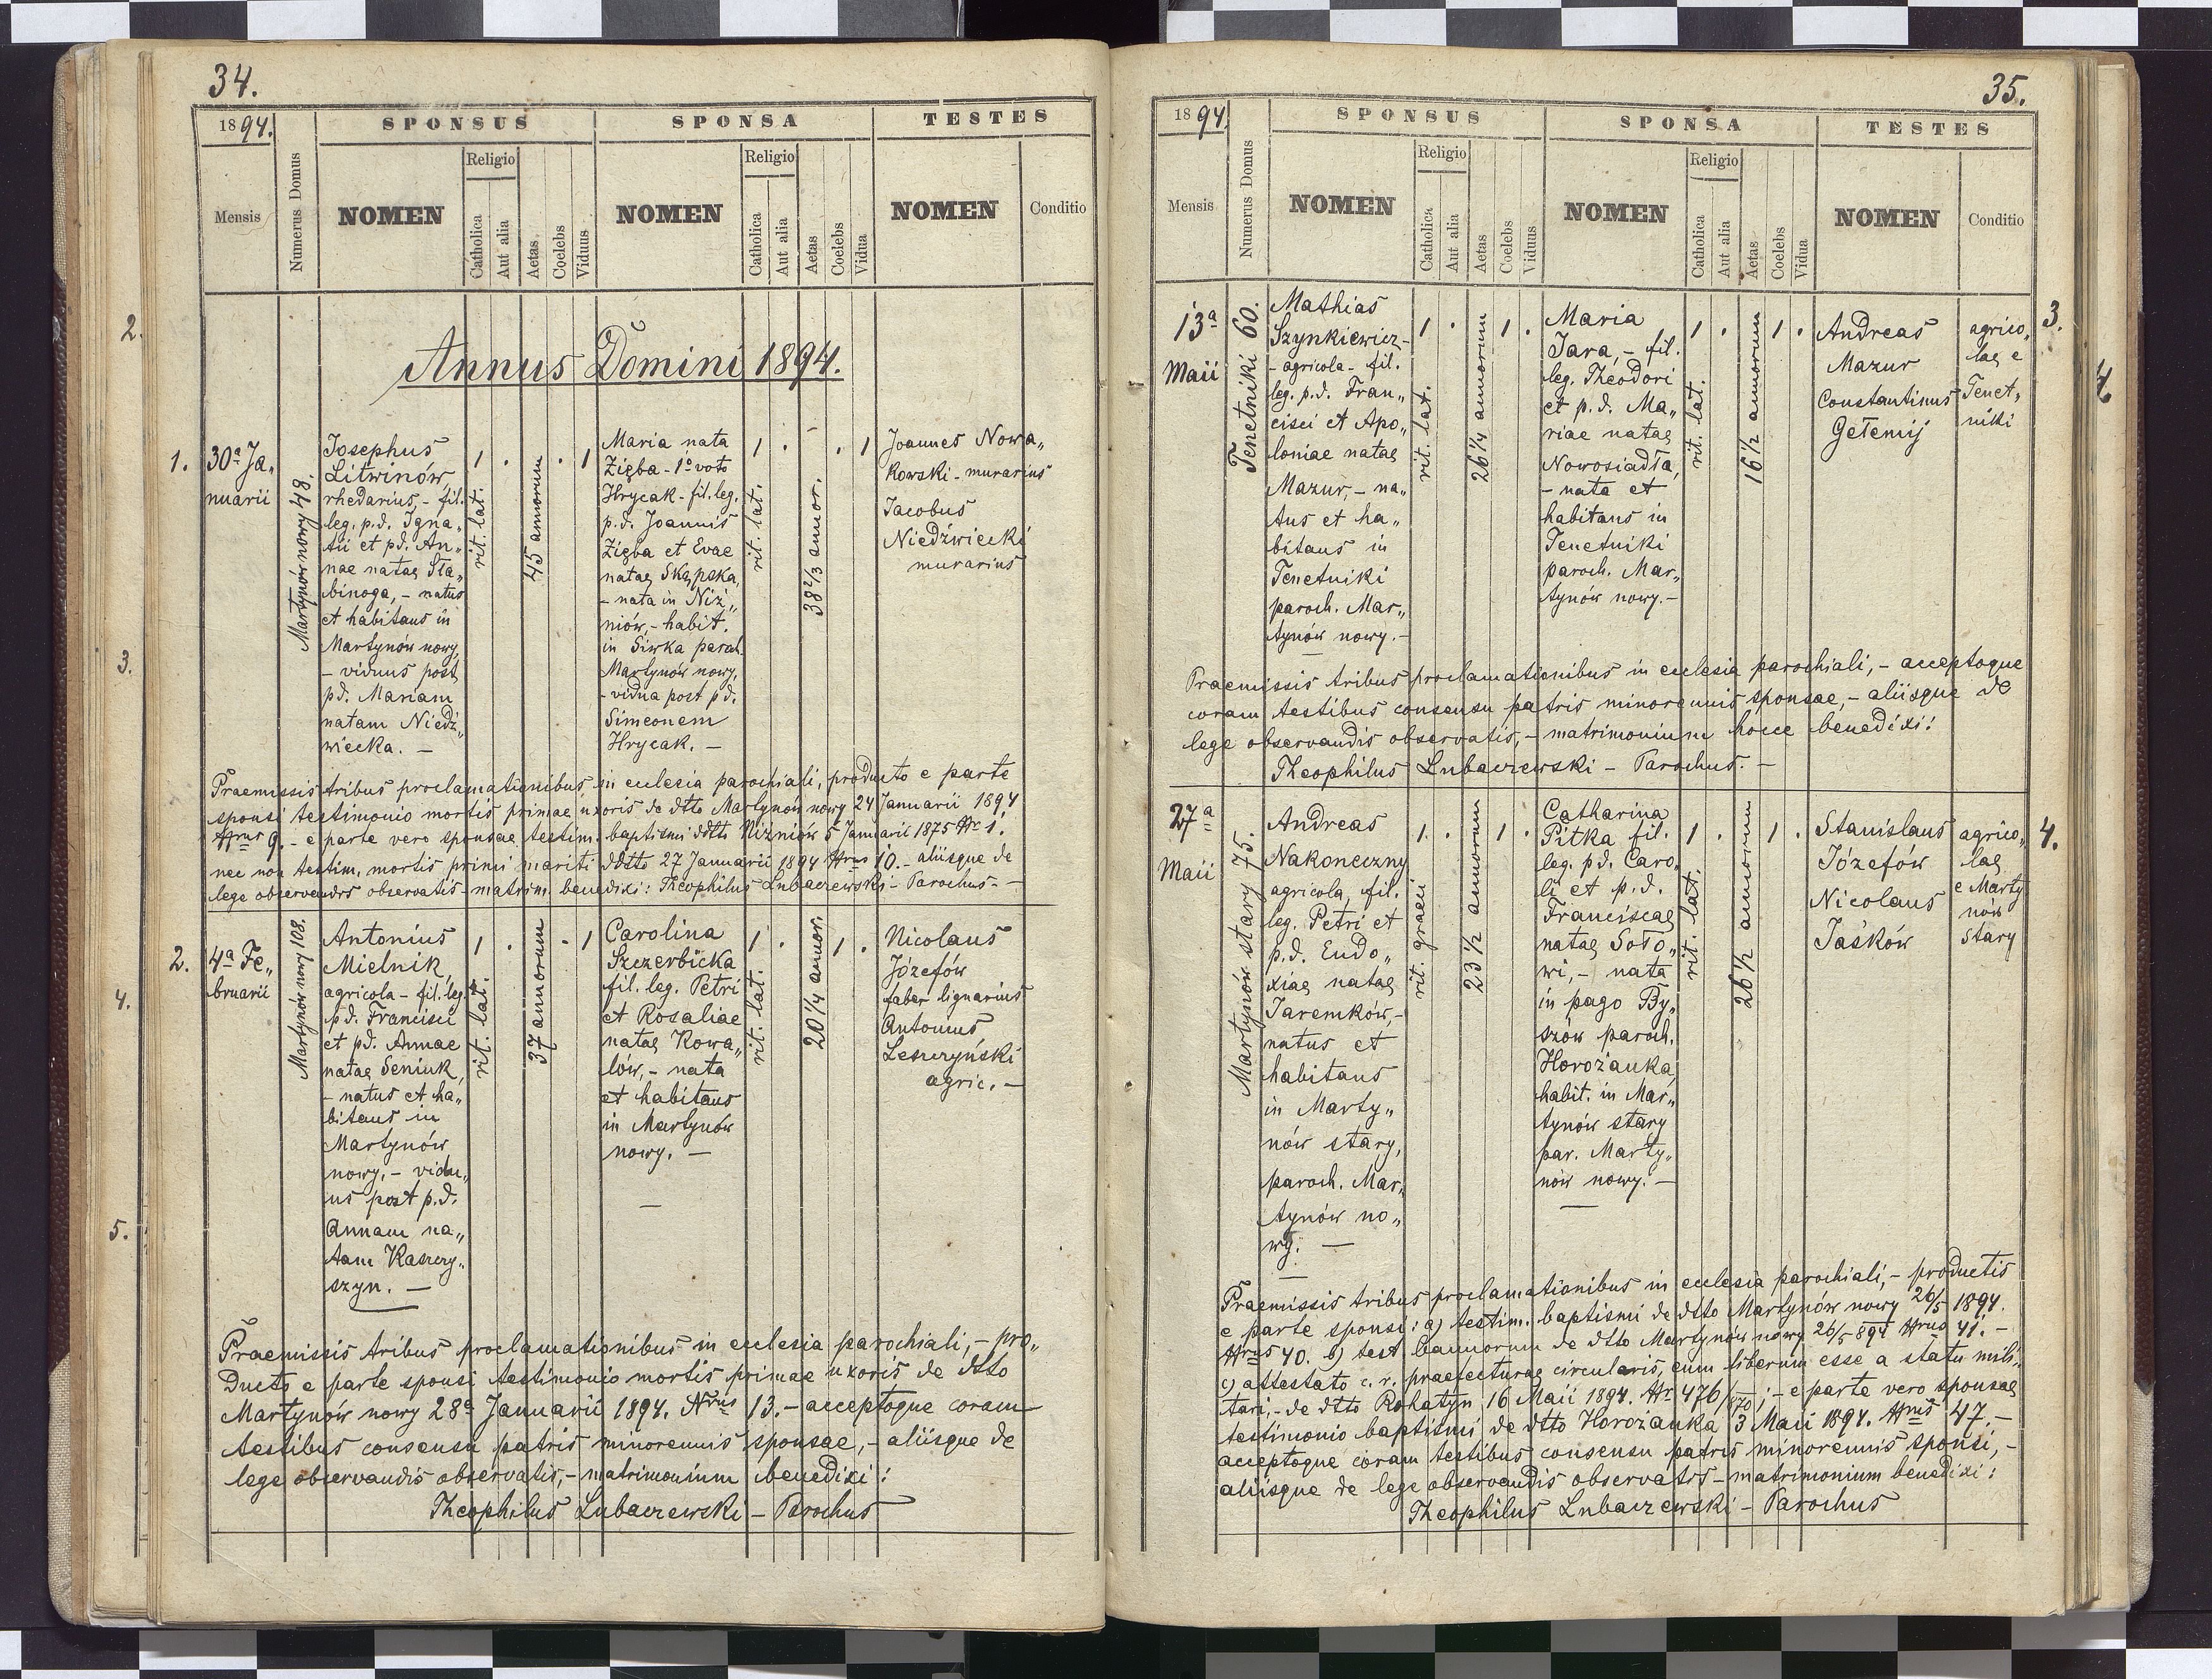 34.
1894.
SPONSUS
SPONSA
TESTES
Mensis
Numerus Domus
NOMEN
Religio
Catholica
Aut alia
Aetas
Coelebs
Viduus
NOMEN
Religio
Catholica
Aut alia
Aetas
Coelebs
Vidua
NOMEN
Conditio
Annus Domini 1894.
1.
30ª Ja„
nuarii
Martynów nowy 48.
Josephus
Litwinów,
rhedarius, - fil.
leg. p.d. Igna„
tii et pd. An„
nae natae Sła„
binoga, - natus
et habitans in
Martynów nowy,
- viduus post
pd. Mariam
natam Niedź„
wiecka. -
1 . . 1
rit. lat.
45 annorum
Maria nata
Zięba - 1º voto
Hrycak - fil. leg.
p.d. Joannis
Zięba et Evae
natae Skępska,
- nata in Niż„
niów, - habit.
in Siwka paroh.
Martynów nowy,
- vidua post pd.
Simeonem
Hrycak. -
1 . . 1
rit. lat.
38 2/3 annor.
Joannes Nowa„
kowski - murarius
Jacobus
Niedźwiecki
murarius
Praemissis tribus proclamationibus in ecclesia parochiali, producto e parte
sponsi testimonio mortis primae uxoris de dtto Martynów nowy 24 Januarii 1894
Nrus 9. - e parte vero sponsae testim. baptismi ddtto Niżniów 5 Januarii 1875 Nr 1.
nec non testim. mortis primi mariti ddtto 27 Januarii 1894 Nrus 10. - aliisque de
lege observandis observatis - matrim. benedixi: Theophilus Lubaczewski - Parochus. -
2.
4ª Fe„
bruarii
Martynów nowy 108.
Antonius
Mielnik,
agricola - fil. leg.
p.d. Francisci
et pd. Annae
natae Seniuk,
- natus et ha„
bitans in
Martynów
nowy, - vidu„
us post p.d.
Annam na„
tam Kaszczy„
szyn. -
1 . . 1
rit. lat.
37 annorum
Carolina
Szczerbicka
fil. leg. Petri
et Rosaliae
natae Kowa„
lów, - nata
et habitans
in Martynów
nowy. -
1 . 1 .
rit. lat.
20 1/4 annor.
Nicolaus
Józefów
faber lignarius
Antonius
Leszczyński
agric. -
Praemissis tribus proclamationibus in ecclesia parochiali, - pro„
ducto e parte sponsi testimonio mortis primae uxoris de dtto
Martynów nowy 28ª Januarii 1894. Nrus 13. - acceptoque coram
testibus consensu patris minorennis sponsae, - aliisque de
lege observandis observatis, - matrimonium benedixi:
Theophilus Lubaczewski - Parochus
35.
1894.
SPONSUS
SPONSA
TESTES
Mensis
Numerus Domus
NOMEN
Religio
Catholica
Aut alia
Aetas
Coelebs
Viduus
NOMEN
Religio
Catholica
Aut alia
Aetas
Coelebs
Vidua
NOMEN
Conditio
13ª
Maii
Tenetniki 60.
Mathias
Szynkiewicz -
- agricola - fil.
leg. p.d. Fran„
cisci et Apo„
loniae natae
Mazur, - na„
tus et ha„
bitans in
Tenetniki
paroch. Mar„
tynów nowy. -
1 . 1 .
rit. lat.
26 1/4 annorum
Maria
Jara, - fil.
leg. Theodori
et p.d. Ma„
riae natae
Nowosiadła,
- nata et
habitans in
Tenetniki
paroch. Mar„
tynów nowy. -
1 . 1 .
rit. lat.
16 1/2 annorum
Andreas
Mazur
Constantinus
Getemij
agrico„
lae e
Tenet„
niki
3.
Praemissis tribus proclamationibus in ecclesia parochiali, - acceptoque
coram testibus consensu patris minorennis sponsae, - aliisque de
lege observandis observatis, - matrimonium hocce benedixi:
Theophilus Lubaczewski - Parochus. -
27ª
Maii
Martynów stary 75.
Andreas
Nakoneczny
agricola, fil.
leg. Petri et
p.d. Eudo„
xiae natae
Jaremków, -
natus et
habitans
in Marty„
nów stary,
paroch. Mar„
tynów no„
wy. -
1 . 1 .
rit. graeci
23 1/2 annorum
Catharina
Pitka fil.
leg. pd. Caro„
li et p.d.
Franciscae
natae Soło„
wi, - nata
in pago By„
szów paroch.
Horożanka,
habit. in Mar„
tynów stary
par. Marty„
nów nowy. -
1 . 1 .
rit. lat.
26 1/2 annorum
Stanislaus
Józefów
Nicolaus
Jaśków
agrico„
lae
e Marty
nów
stary
4.
Praemissis tribus proclamationibus in ecclesia parochiali, - productis
e parte sponsi: a) testim. baptismi de dtto Martynów nowy 26/5 1894.
Nrus 40. b) test bannorum de dtto Martynów nowy 26/5 894 Nrus 41. -
c) attestato c. r. praefecturae circularis, eum liberum esse a statu mili„
tari, - de dtto Rohatyn 16 Maii 1894. Nr 476/870; - e parte vero sponsae
testimonio baptismi de dtto Horożanka 3 Maii 1894. Nrus 47. -
acceptoque coram testibus consensu patris minorennis sponsi, -
aliisque de lege observandis observatis - matrimonium benedixi:
Theophilus Lubaczewski - Parochus
2.
3.
4.
5.
4